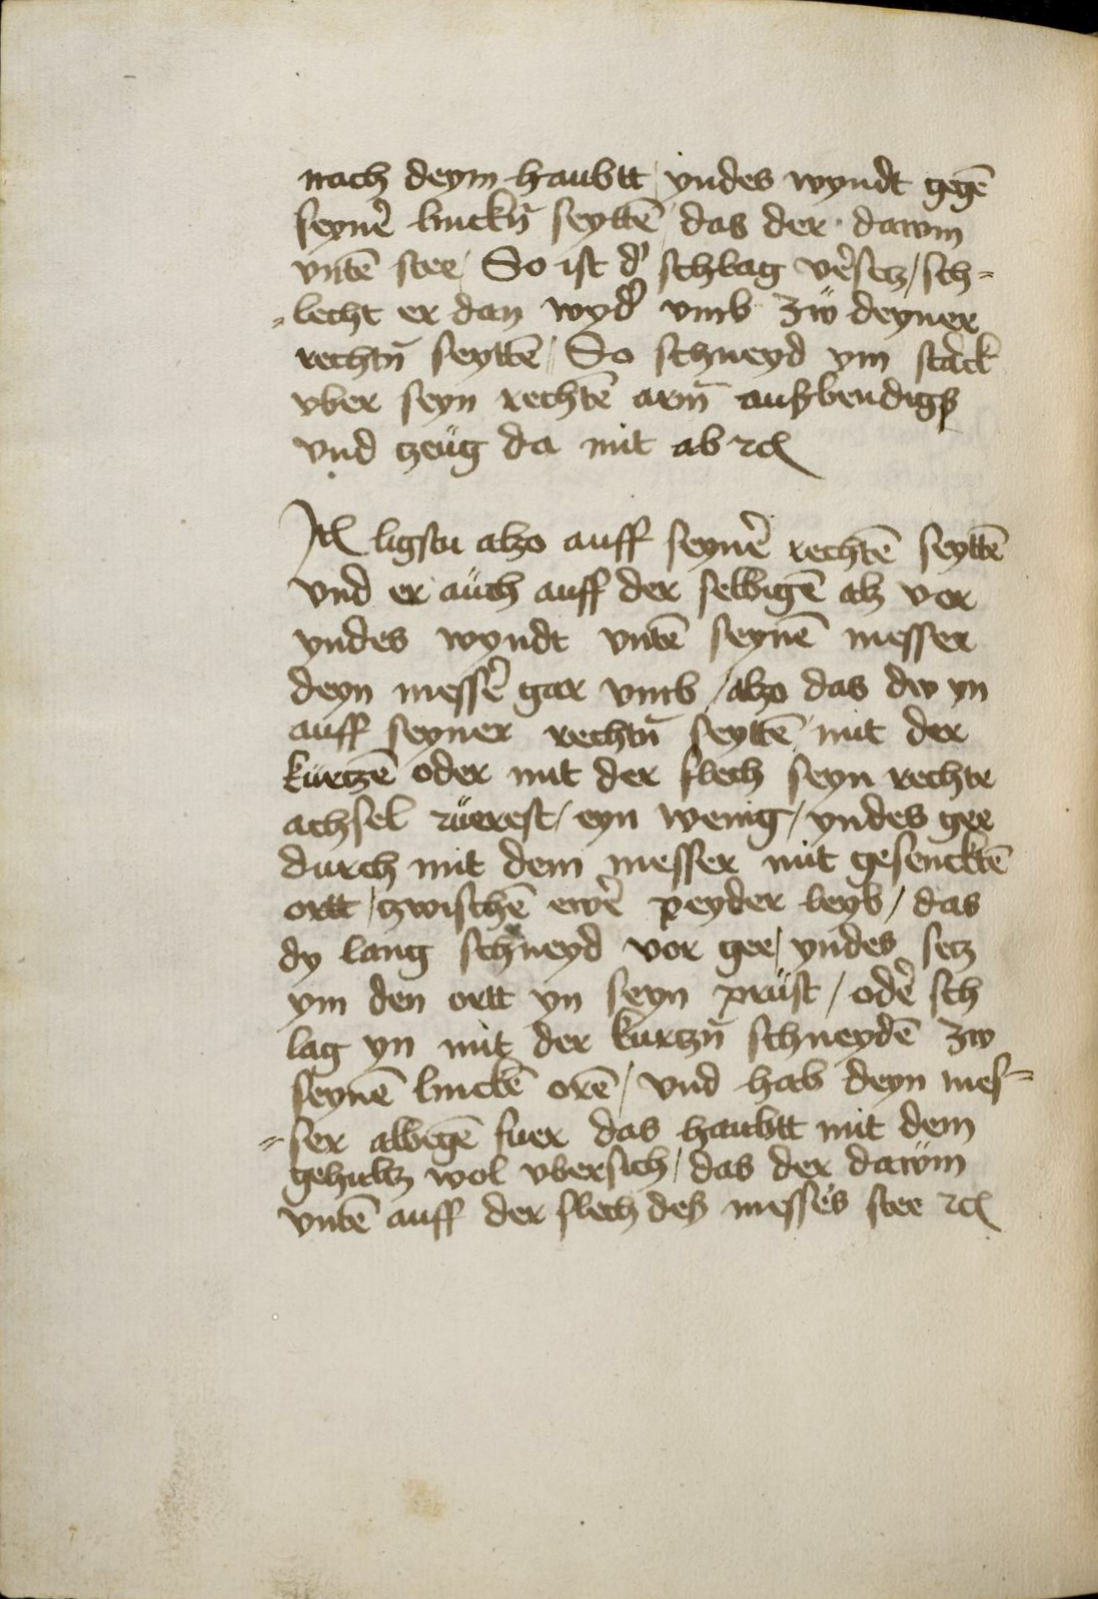 nach deym haubtt / yndes wyndt gegē
seynē linckn̄ seyttē / das der dawm
vntē stee / So ist dʼ schlag vēsetz / sch=
=lecht er dan wydʼ vmb zẅ deyner
rechtn̄ seyttē / So schneyd ym starck
vber seyn rechtē arm̄ außbendigß
vnd tzeüg da mit ab ⁊c̄

Itē ligstu alzo auff seynē rechtē seyttē
vnd er aüch auff der selbigē alz vor
yndes wyndt vntē seynē messer
deyn messē gar vmb / alzo das dw yn
auff seyner rechtn̄ seyttē mit der
kürtzē oder mit der flech seyn rechte
achsel rüerest / eyn wenig / yndes gee
durch mit dem messer mit gesencktē
ortt / tzwischē ewē peyder leyb / das
dy lang schneyd vor gee / yndes setz
ym den ortt yn seyn prüst / odē sch
lag yn mit der kurtzn̄ schneydē zw
seynē linckē orē / vnd hab deyn mes=
=ser albegē fuer das haubtt mit dem
gehultz wol vbersich / das der dawm
vntē auff der flech deß messēs stee ⁊c̄